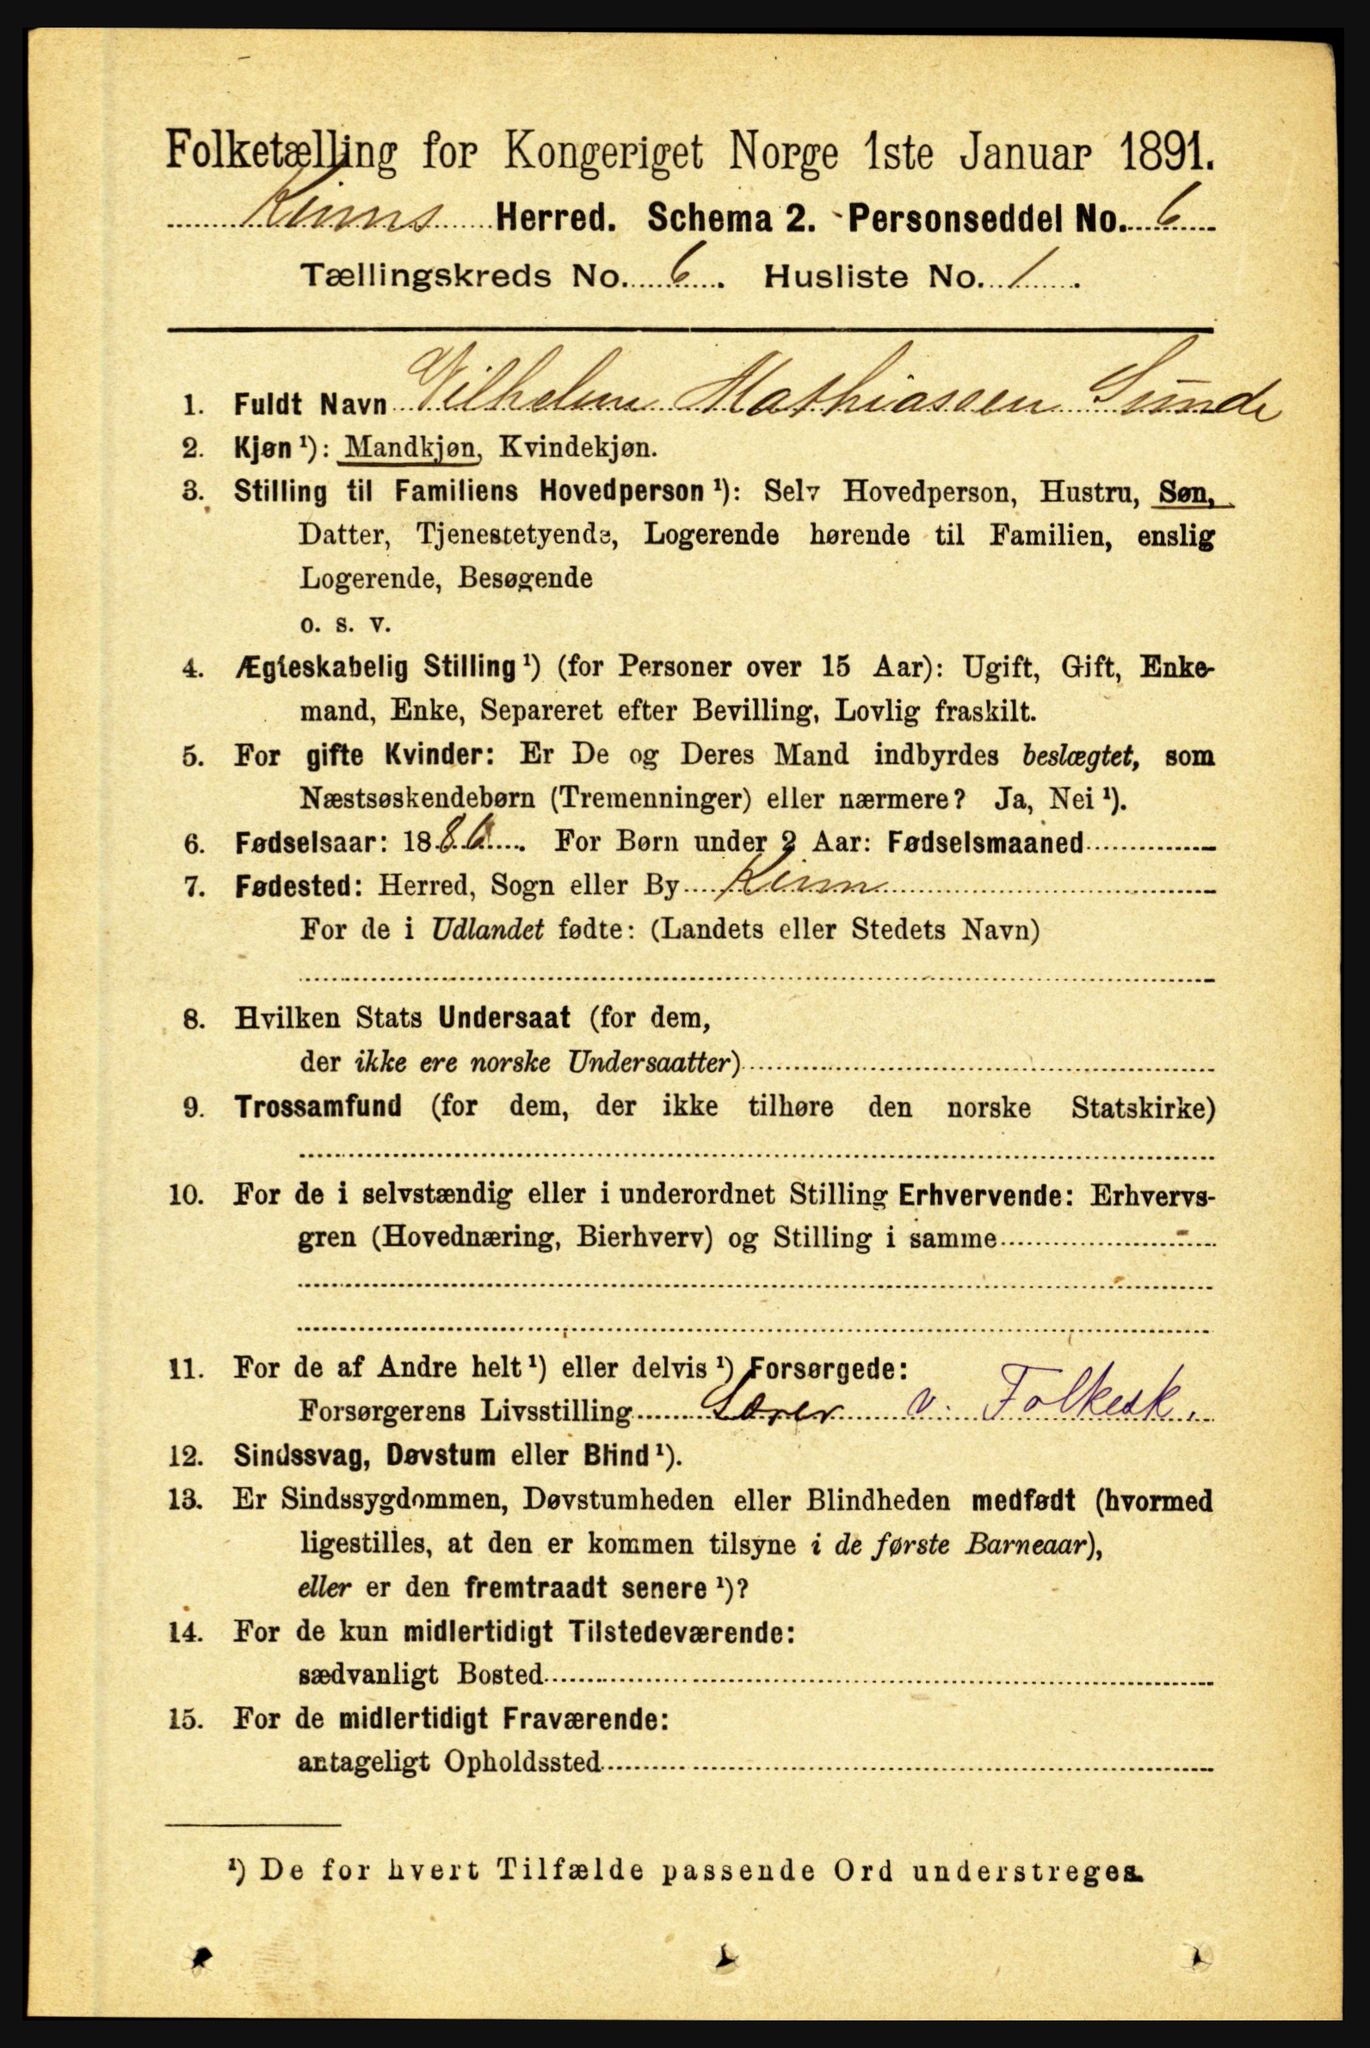 Folketælling for Kongeriget Norge 1ste Januar 1891.
Kinns Herred. Schema 2. Personseddel No. 6
Tællingskreds No. 6. Husliste No. 1.
1. Fuldt Navn Vilhelm Mathiassen Sunde
2. Kjøn ¹): Mandkjøn, Kvindekjøn.
3. Stilling til Familiens Hovedperson ¹): Selv Hovedperson, Hustru, Søn,
Datter, Tjenestetyende, Logerende hørende til Familien, enslig
Logerende, Besøgende
o. s. v.
4. Ægteskabelig Stilling ¹) (for Personer over 15 Aar): Ugift, Gift, Enke-
mand, Enke, Separeret efter Bevilling, Lovlig fraskilt.
5. For gifte Kvinder: Er De og Deres Mand indbyrdes beslægtet, som
Næstsøskendebørn (Tremenninger) eller nærmere? Ja, Nei ¹).
6. Fødselsaar: 1886. For Børn under 2 Aar: Fødselsmaaned
7. Fødested: Herred, Sogn eller By Kinn
For de i Udlandet fødte: (Landets eller Stedets Navn)
8. Hvilken Stats Undersaat (for dem,
der ikke ere norske Undersaatter)
9. Trossamfund (for dem, der ikke tilhøre den norske Statskirke)
10. For de i selvstændig eller i underordnet Stilling Erhvervende: Erhvervs-
gren (Hovednæring, Bierhverv) og Stilling i samme -
11. For de af Andre helt ¹) eller delvis ¹) Forsørgede:
Forsørgerens Livsstilling Lærer v. Folkesk.
12. Sindssvag, Døvstum eller Blind ¹).
13. Er Sindssygdommen, Døvstumheden eller Blindheden medfødt (hvormed
ligestilles, at den er kommen tilsyne i de første Barneaar),
eller er den fremtraadt senere ¹)?
14. For de kun midlertidigt Tilstedeværende:
sædvanligt Bosted
15. For de midlertidigt Fraværende:
antageligt Opholdssted
¹) De for hvert Tilfælde passende Ord understreges.